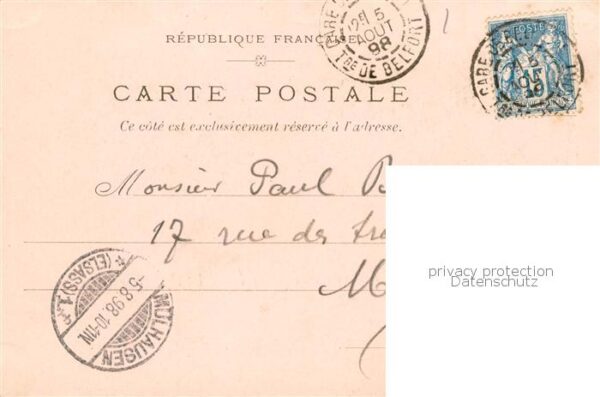 RÉPUBLIQUE FRANÇAISE
CARTE POSTALE
Ce côté est exclusivement réservé à l'adresse.
GARE
5
AOUT
98
DE BELFORT
POSTE
GARE
Monsieur Paul B
17 rue des
M
MÜLHAUSEN
-5.8.98.10-11N.
(ELSASS)1.
privacy protection
Datenschutz